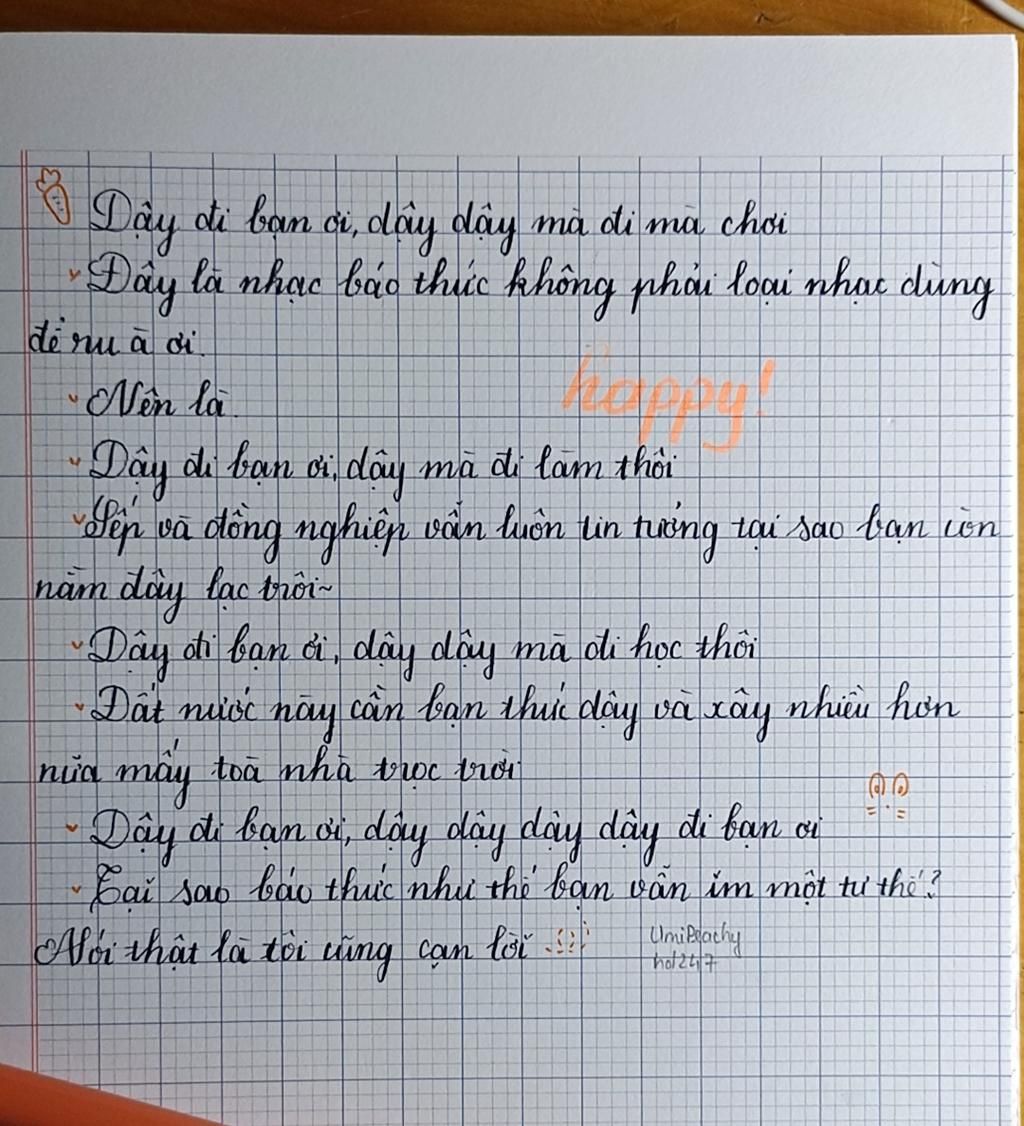 Dậy đi bạn ơi, dậy dậy mà đi mà chơi
Đây là nhạc báo thức không phải loại nhạc dùng
để ru à ơi.
happy!
Nên là
Dậy đi bạn ơi, dậy mà đi làm thôi
Sếp và đồng nghiệp vẫn luôn tin tưởng tại sao bạn còn
nằm đây lạc trôi~
Dậy đi bạn ơi, dậy dậy mà đi học thôi
Đất nước này cần bạn thức dậy và xây nhiều hơn
nữa mấy toà nhà trọc trời
Dậy đi bạn ơi, dậy dậy dậy dậy đi bạn ơi
Tại sao báo thức như thế bạn vẫn im một tư thế?
Nói thật là tôi cũng cạn lời ..!?!
UmiPeachy
hoi247